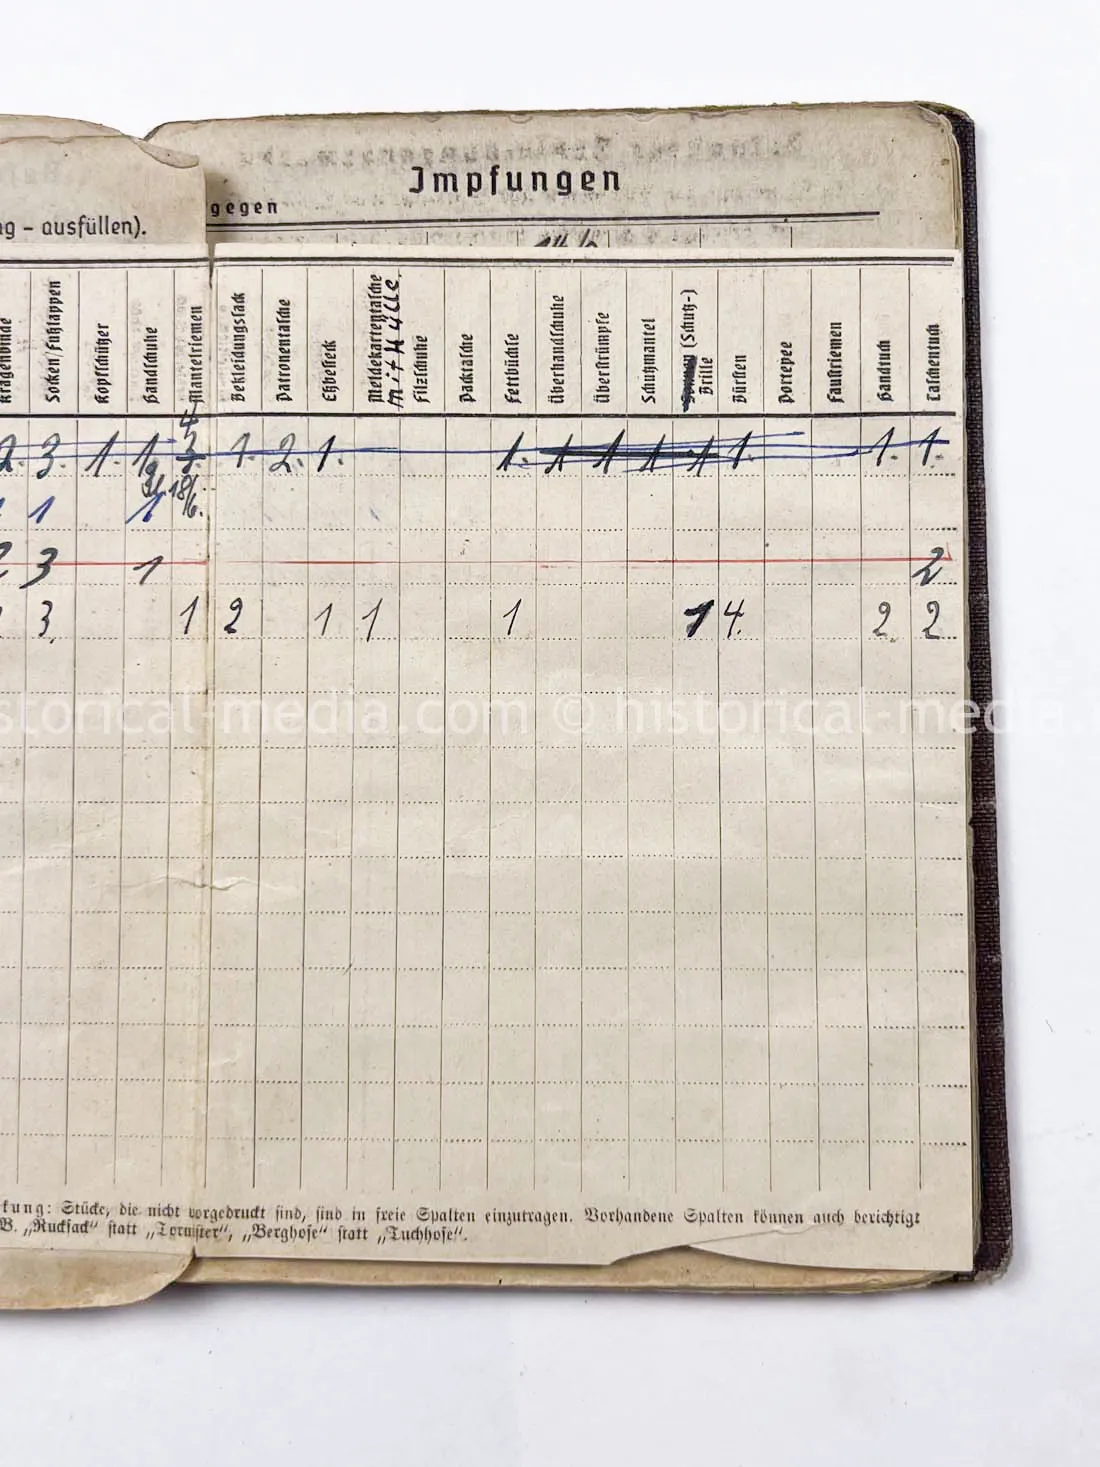 Impfungen
gegen
ng – ausfüllen).
Kragenbinde
Socken/Fußlappen
Kopfschützer
Handschuhe
Mantelriemen
Bekleidungssack
Patronentasche
Eßbesteck
Meldekartentasche
mit Hülle
Filzschuhe
Packtasche
Fettbüchse
Überhandschuhe
Überstrümpfe
Schutzmantel
(Schutz-)
Brille
Bürsten
Portepee
Faustriemen
Handtuch
Taschentuch
4
2. 3. 1. 1. 3. 1. 2. 1. 1. 1 1 1 1 1. 1. 1.
18/6.
1 1
2 3 1 2
3. 1 2 1 1 1 1 4. 2 2
storical-media.com © historical-media.c
kung: Stücke, die nicht vorgedruckt sind, sind in freie Spalten einzutragen. Vorhandene Spalten können auch berichtigt
B. „Rucksack“ statt „Tornister“, „Berghose“ statt „Tuchhose“.